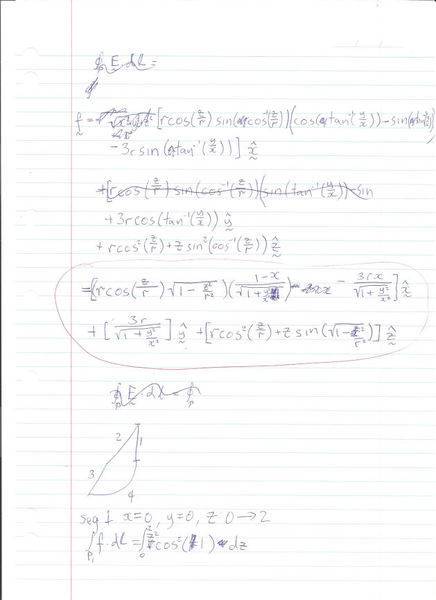 ∮ E · dL =
f = [r cos(z/r) sin(cos⁻¹(z/r))(cos(tan⁻¹(y/x)) - sin
- 3r sin(tan⁻¹(y/x))] x̂
+[r cos(z/r) sin(cos⁻¹(z/r))(sin(tan⁻¹(y/x)) - sin
+ 3r cos(tan⁻¹(y/x)) ŷ
+ r cos²(z/r) + z sin²(cos⁻¹(z/r)) ẑ
= [r cos(z/r) √(1 - z²/r²) ((1-x)/√(1 + y²/x²)) - 3rx/√(1 + y²/x²)] x̂
+ [3r/√(1 + y²/x²)] ŷ + [r cos²(z/r) + z sin(√(1 - z²/r²))] ẑ
∮ E · dL = ∮
2 1
3
4
seg 1 x=0, y=0, z 0→2
∫ f · dL = ∫ cos²(1) dz
P₁